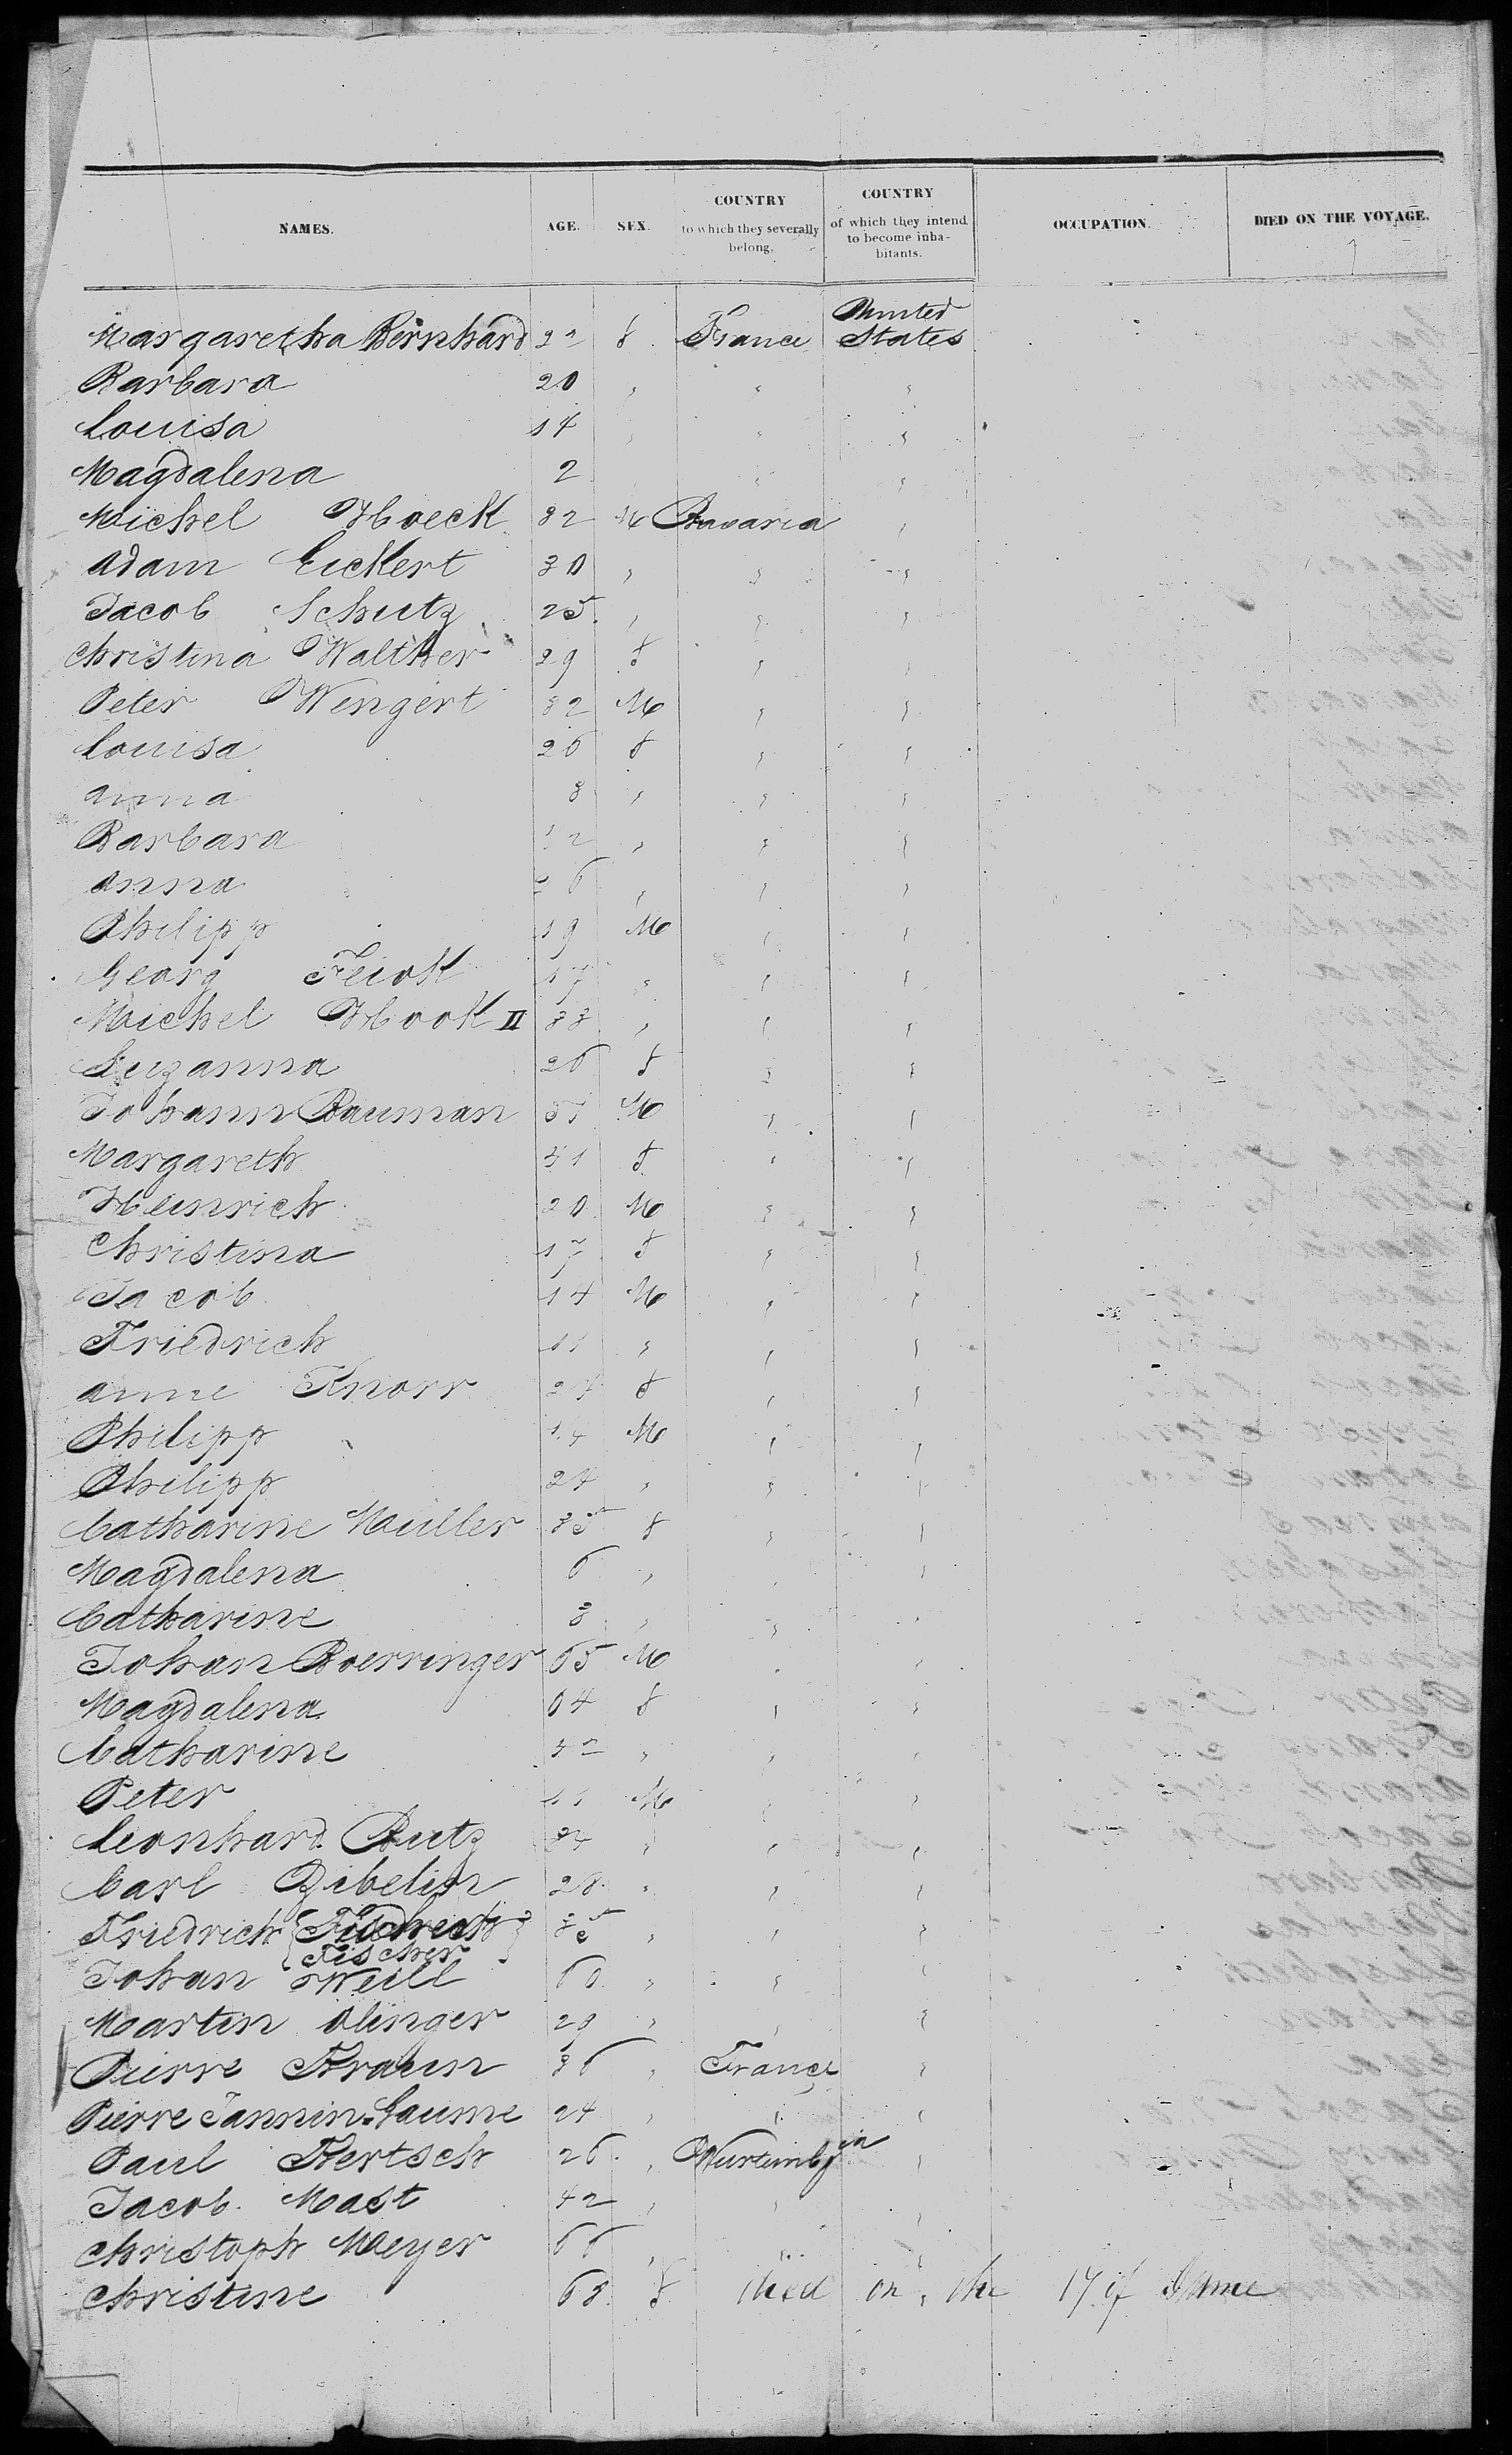 NAMES. AGE. SEX. COUNTRY to which they severally belong. COUNTRY of which they intend to become inhabitants. OCCUPATION. DIED ON THE VOYAGE.
Margaretha Bernhard 22 f France United States
Barbara 20 " " "
Louisa 14 " " "
Magdalena 2 " "
Michel Hoeck 32 M Bavaria "
Adam Eickert 30 " " "
Jacob Schutz 25 " " "
Christina Walther 29 f " "
Peter Wengert 32 M " "
Louisa 26 f " "
Anna 3 " " "
Barbara 12 " " "
Anna 26 " " "
Philipp 19 M " "
Georg Feiok 17 " " "
Michel Hook II 33 " " "
Suzanna 26 f " "
Johann Bauman 51 M " "
Margareth 51 f " "
Heinrich 20 M " "
Christina 17 f " "
Jacob 14 M " "
Friedrich 11 " " "
Anne Knorr 24 f " "
Philipp 14 M " "
Philipp 24 " " "
Catharine Muller 35 f " "
Magdalena 6 " " "
Catharine 3 " " "
Johan Boerringer 65 M " "
Magdalena 64 f " "
Catharine " " "
Peter 11 M " "
Leonhard Butz " " "
Carl Zibelin 28 " " "
Friedrich 35 " " "
Fischer
Johan Weill 60 " " "
Martin Olinger 29 " " "
Pierre Braun 36 " France "
Pierre Jannin-Gaume 24 " " "
Paul Bertsch 26 " "
Jacob Mast 42 " " "
Christoph Meyer 66 " " "
Christine 68 f died on the 17 of June